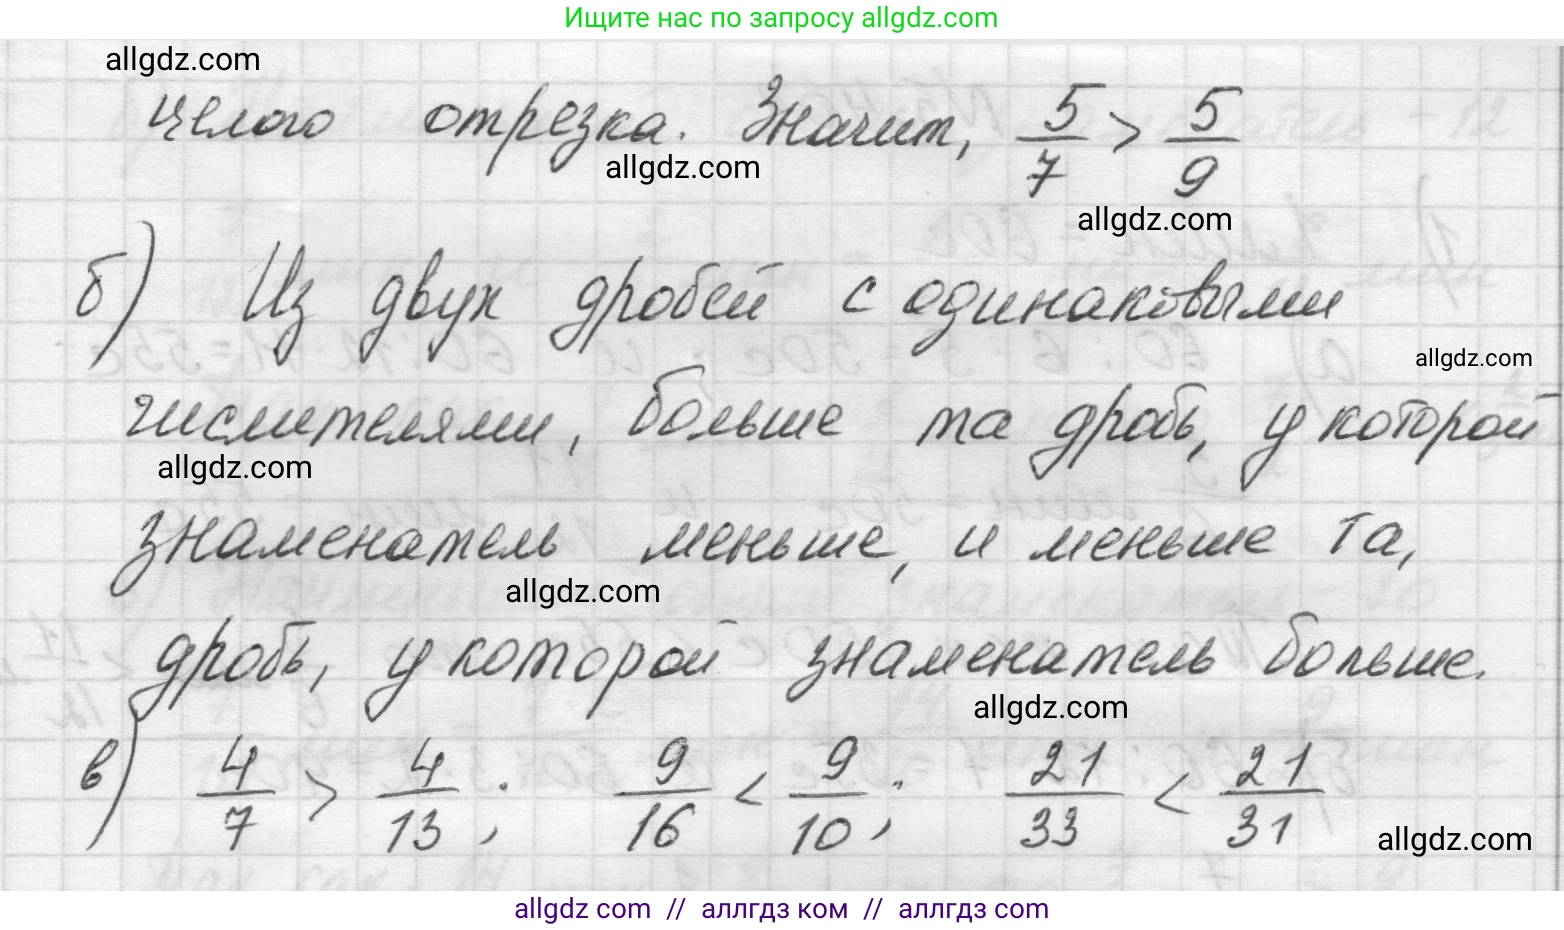 Ищите нас по запросу allgdz.com
allgdz.com
целого отрезка. Значит, 5/7 > 5/9
allgdz.com
allgdz.com
б) Из двух дробей с одинаковыми
allgdz.com
числителями, больше та дробь, у которой
allgdz.com
знаменатель меньше, и меньше та,
allgdz.com
дробь, у которой знаменатель больше.
allgdz.com
в) 4/7 > 4/13; 9/16 < 9/10; 21/33 < 21/31
allgdz.com
allgdz com // аллгдз ком // аллгдз com